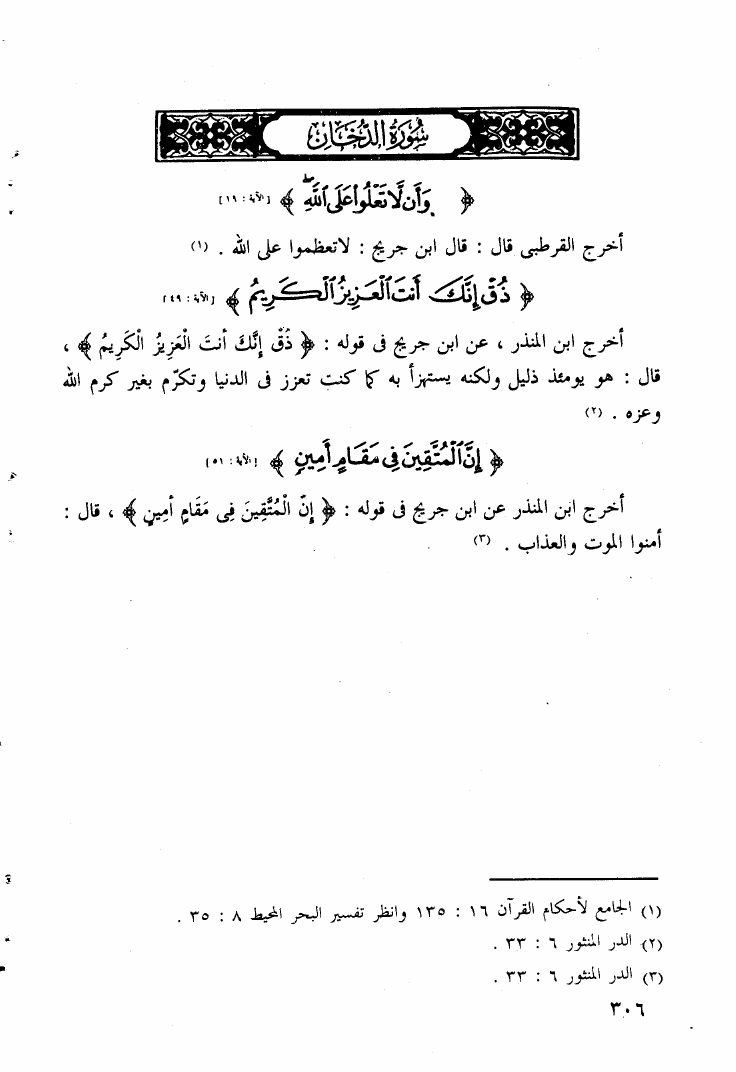 سُورَةُ الدُّخَانِ
﴿ وَأَن لَّا تَعْلُوا۟ عَلَى ٱللَّهِ ۖ ﴾ [الآية : ١٩]
أخرج القرطبى قال : قال ابن جريج : لاتعظموا على الله . (١)
﴿ ذُقْ إِنَّكَ أَنتَ ٱلْعَزِيزُ ٱلْكَرِيمُ ﴾ [الآية : ٤٩]
أخرج ابن المنذر ، عن ابن جريج فى قوله : ﴿ ذُقْ إِنَّكَ أنتَ الْعَزِيزُ الْكَرِيمُ ﴾ ،
قال : هو يومئذ ذليل ولكنه يستهزأ به كما كنت تعزز فى الدنيا وتكرّم بغير كرم الله
وعزه . (٢)
﴿ إِنَّ ٱلْمُتَّقِينَ فِى مَقَامٍ أَمِينٍ ﴾ [الآية : ٥١]
أخرج ابن المنذر عن ابن جريج فى قوله : ﴿ إنّ الْمُتَّقِينَ فِى مَقَامٍ أمِينٍ ﴾ ، قال :
أمنوا الموت والعذاب . (٣)
(١) الجامع لأحكام القرآن ١٦ : ١٣٥ وانظر تفسير البحر المحيط ٨ : ٣٥ .
(٢) الدر المنثور ٦ : ٣٣ .
(٣) الدر المنثور ٦ : ٣٣ .
٣٠٦